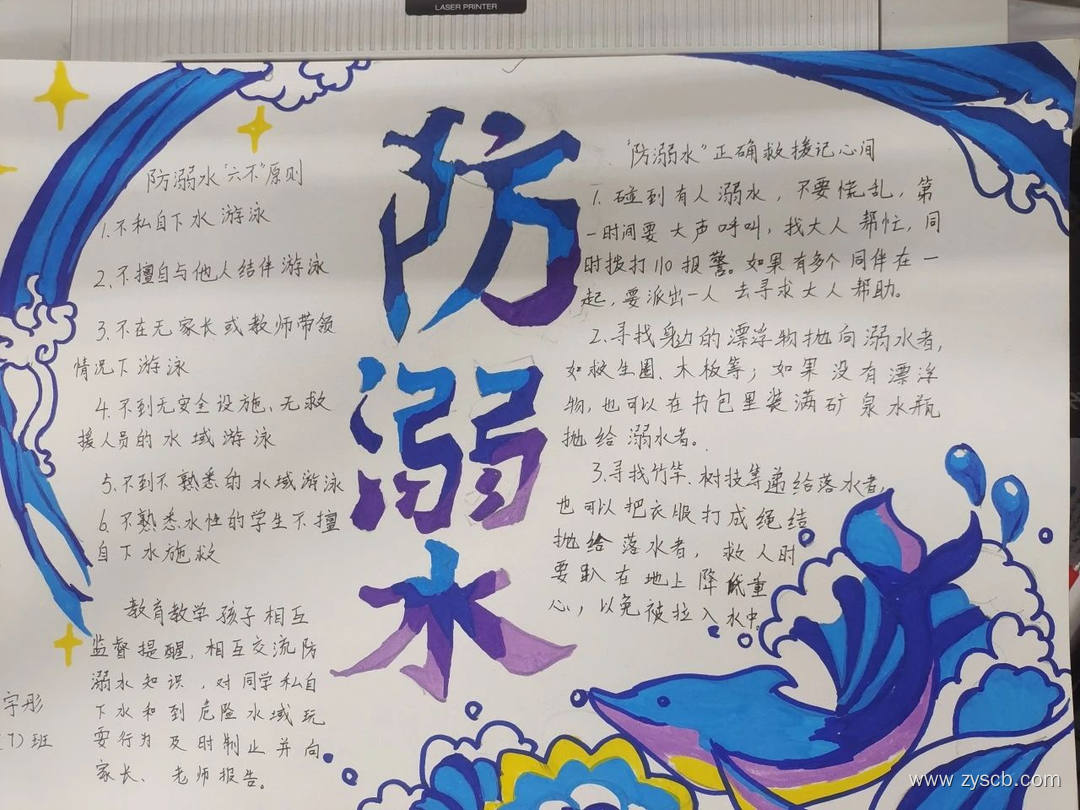 LASER PRINTER
防溺水
防溺水“六不”原则
1.不私自下水游泳
2.不擅自与他人结伴游泳
3.不在无家长或教师带领
情况下游泳
4.不到无安全设施、无救
援人员的水域游泳
5.不到不熟悉的水域游泳
6.不熟悉水性的学生不擅
自下水施救
教育教学孩子相互
监督提醒,相互交流防
溺水知识,对同学私自
下水和到危险水域玩
耍行为及时制止并向
家长、老师报告。
宇彤
(7)班
“防溺水”正确救援记心间
1.碰到有人溺水,不要慌乱,第
一时间要大声呼叫,找大人帮忙,同
时拨打110报警。如果有多个同伴在一
起,要派出一人去寻求大人帮助。
2.寻找身边的漂浮物抛向溺水者,
如救生圈、木板等;如果没有漂浮
物,也可以在书包里装满矿泉水瓶
抛给溺水者。
3.寻找竹竿、树技等递给落水者,
也可以把衣服打成绳结
抛给落水者,救人时
要趴在地上降低重
心,以免被拉入水中。
www.zyscb.com